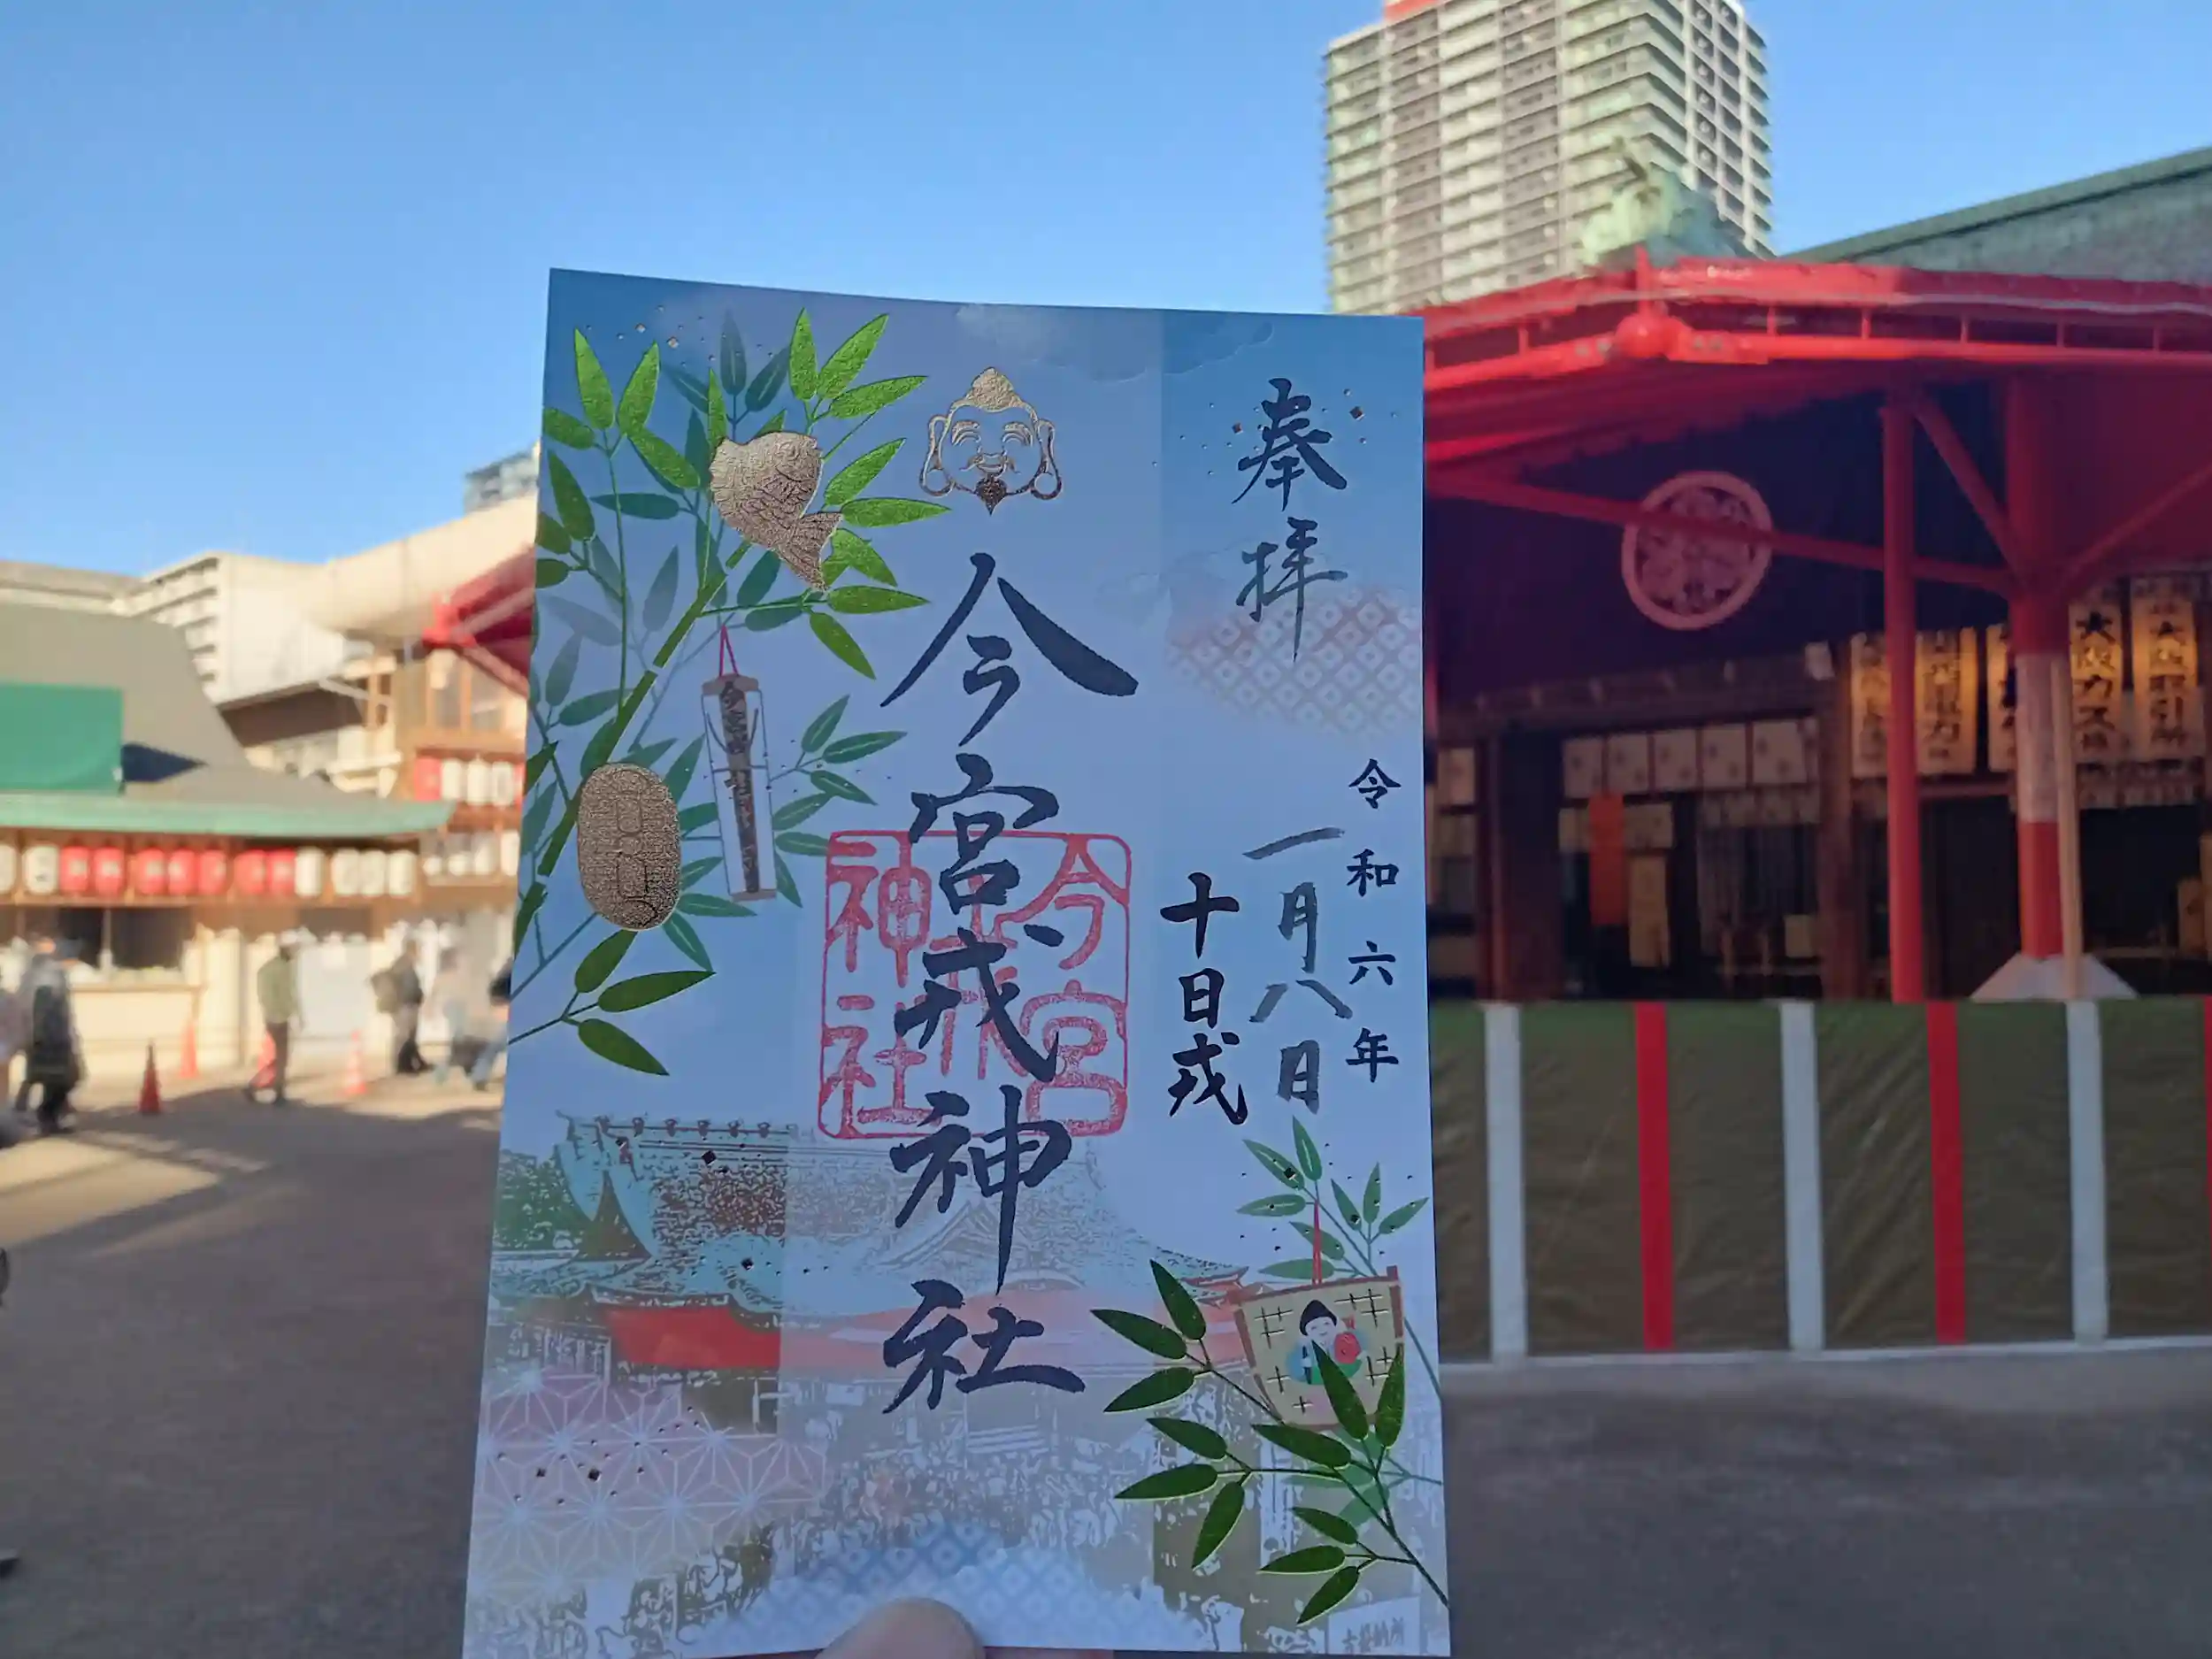 奉拝
令和六年
一月八日
十日戎
今宮戎神社
今宮戎神社
大阪ガス